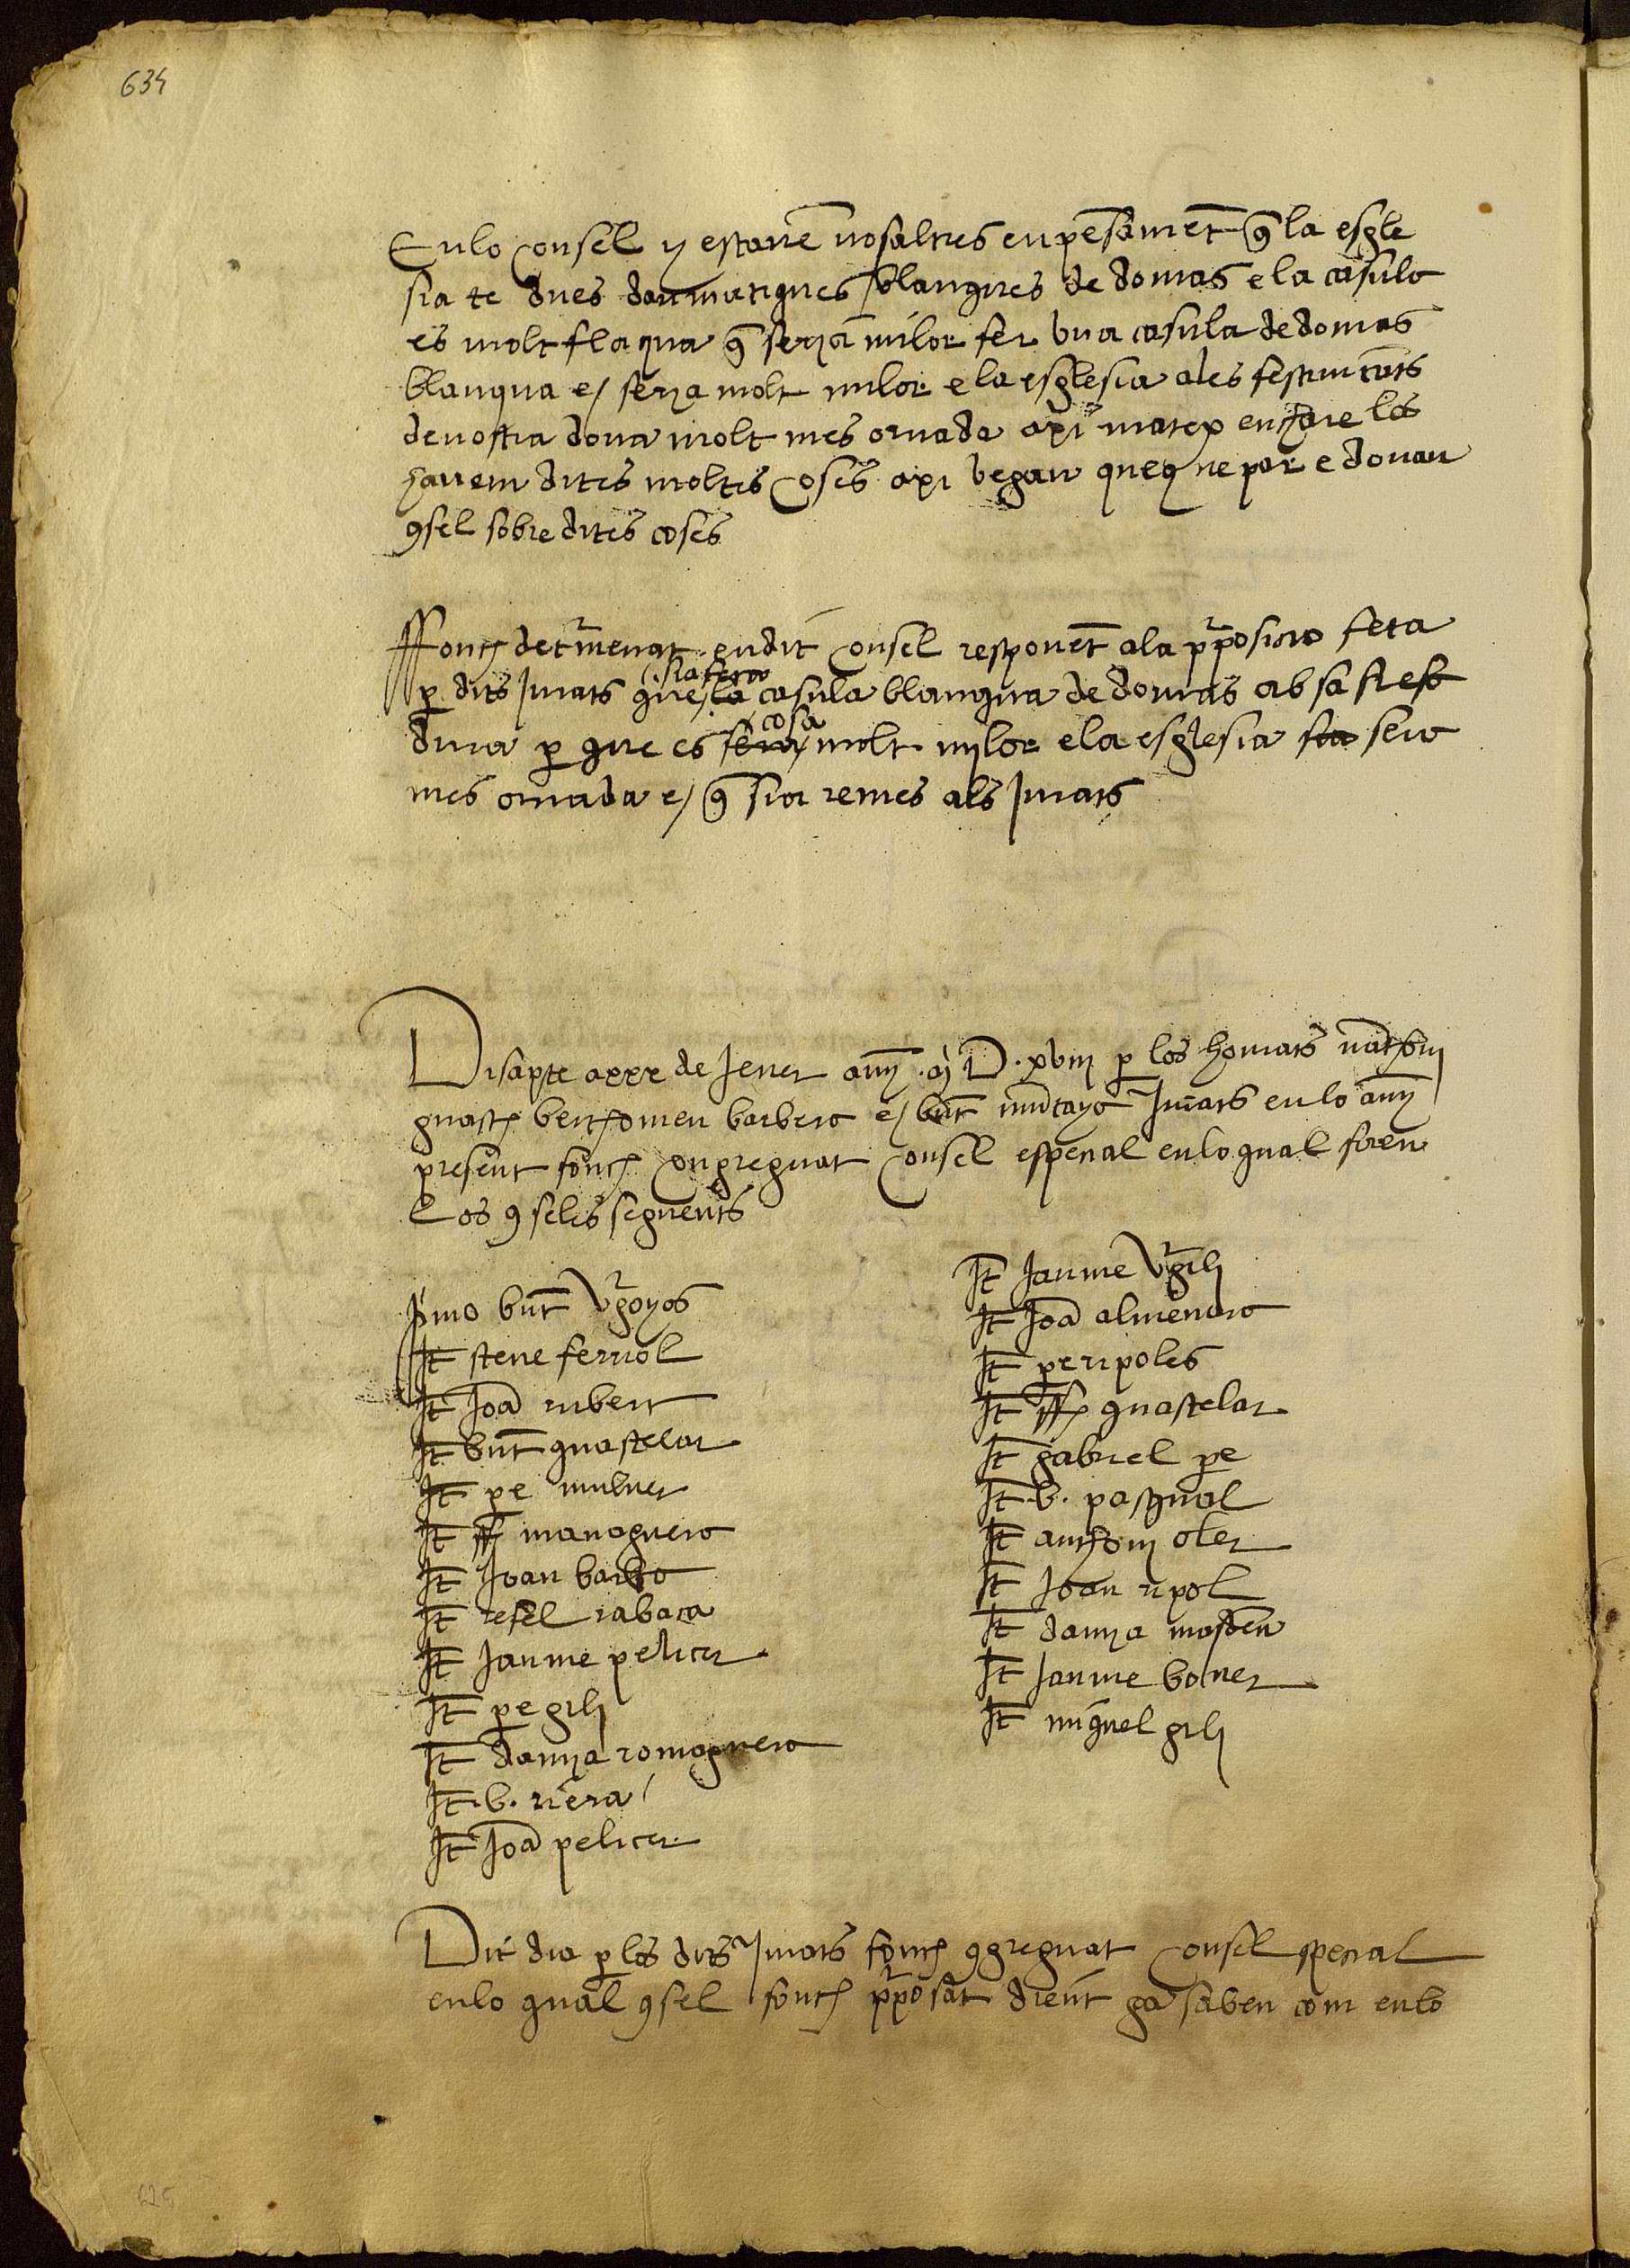 634
En lo Consel y estavē nosaltres en pēsamēt q̄ la esgle
sia te dues darmatiques blanques de domas e la casula
es molt flaqua q̄ serya milor fer una casula de domas
blanqua e serya molt milor e la esglesia a les festivitats
de nostra dona molt mes ornada axi matex
havem dites moltes Coses axi vegan que us ne par e donau
9sel sobre dites coses
Ffonch det̄menat en dit Consel responēt a la p̄posicio feta
p̄ dits Jurats que la sia feta casula blanqua de domas ab sa
dura p̄ que es cosa molt mylor e la esglesia sera
mes ornada e q̄ sia remes als Jurats
Disapte a xxx de Jener any .M D. xviii p̄ los honrats nāthoni
guasch berthomeu barbera e bn̄t muntayā Jurats en lo any
present fonch Congreguat Consel especial en lo qual foren
Los 9selēs seguents
P̄mo bn̄t v̄goyos
It̄ steve ferriol
It̄ Joā rubert
It̄ bn̄t guastelar
It̄ pē muluer
It̄ ff managuera
It̄ Joan barbo
It̄ rafel rabaca
It̄ Jaume pelicer
It̄ pē gili
It̄ damya romaguera
It̄ b. riera
It̄ Joā pelicer
It̄ Jaume v̄gili
It̄ Joā almenara
It̄ per ripoles
It̄ ff guastelar
It̄ gabriel pē
It̄ b. pasqual
It̄ anthoni oler
It̄ Joan ripol
It̄ damya masdeu
It̄ Jaume boner
It̄ miquel gili
Dit dia p̄ los dits Jurats fonch 9greguat Consel special
en lo qual 9sel fonch p̄posat dient ga saben com en lo
625